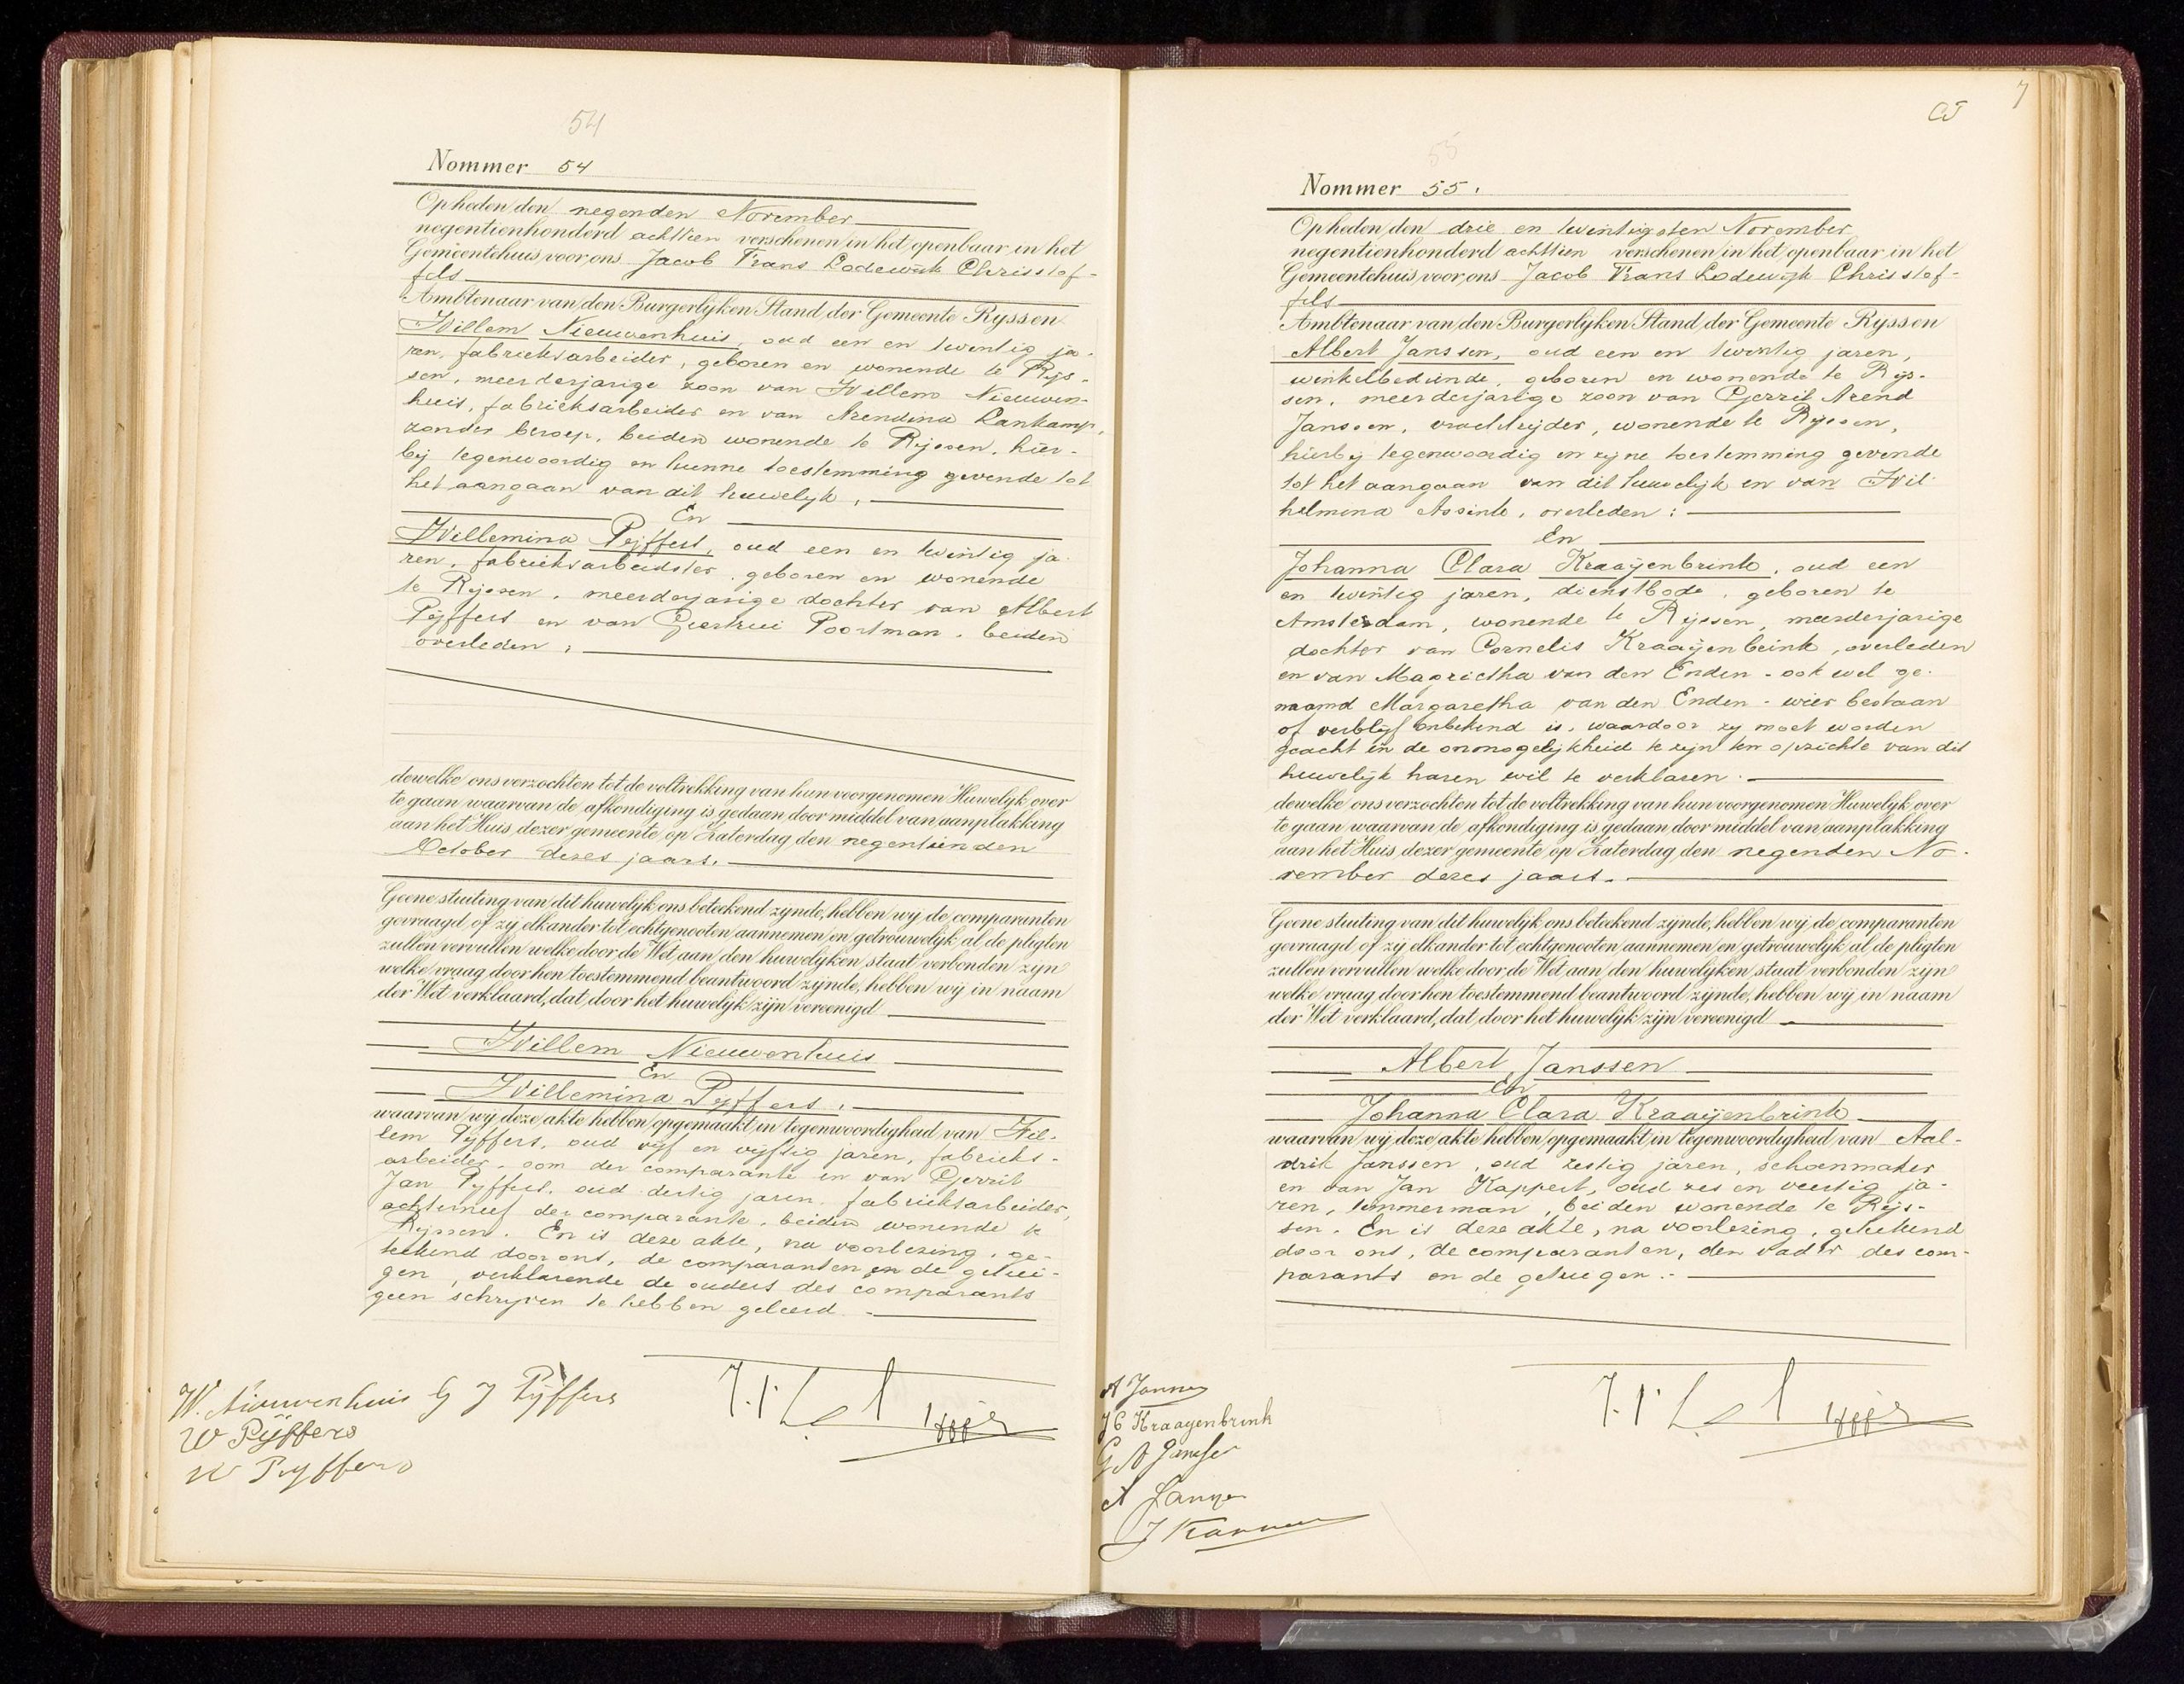 54
Nommer 54
Op heden den negenden November
negentienhonderd achttien verschenen in het openbaar in het
Gemeentehuis voor ons Jacob Frans Lodewijk Christof-
fels
Ambtenaar van den Burgerlyken Stand der Gemeente Ryssen
Willem Nieuwenhuis, oud een en twintig ja-
ren, fabrieksarbeider, geboren en wonende te Rijs-
sen, meerderjarige zoon van Willem Nieuwen-
huis, fabrieksarbeider en van Arendina Lankamp,
zonder beroep, beiden wonende te Rijssen, hier-
bij tegenwoordig en hunne toestemming gevende tot
het aangaan van dit huwelijk;
En
Willemina Pijffers, oud een en twintig ja-
ren, fabrieksarbeidster, geboren en wonende
te Rijssen, meerderjarige dochter van Albert
Pijffers en van Geertrui Poortman, beiden
overleden;
dewelke ons verzochten tot de voltrekking van hun voorgenomen Huwelyk over
te gaan waarvan de afkondiging is gedaan door middel van aanplakking
aan het Huis dezer gemeente op Zaterdag den negentienden
October dezes jaars.
Geene stuiting van dit huwelyk ons beteekend zynde, hebben wy de comparanten
gevraagd, of zij elkander tot echtgenooten aannemen en getrouwelyk al de pligten
zullen vervullen welke door de Wet aan den huwelyken staat verbonden zyn
welke vraag door hen toestemmend beantwoord zynde, hebben wy in naam
der Wet verklaard, dat door het huwelyk zyn vereenigd
Willem Nieuwenhuis
En
Willemina Pijffers.
waarvan wy deze akte hebben opgemaakt in tegenwoordigheid van Wil-
lem Pijffers, oud vijf en vijftig jaren, fabrieks-
arbeider, oom der comparante en van Gerrit
Jan Pijffers, oud dertig jaren, fabrieksarbeider,
achterneef der comparante, beiden wonende te
Rijssen. En is deze akte, na voorlezing, ge-
teekend door ons, de comparanten en de getui-
gen, verklarende de ouders des comparants
geen schrijven te hebben geleerd.
W. Nieuwenhuis G J Pijffers
W Pijffers
W Pyffers
7
55
Nommer 55.
Op heden den drie en twintigsten November
negentienhonderd achttien verschenen in het openbaar in het
Gemeentehuis voor ons Jacob Frans Lodewijk Christof-
fels
Ambtenaar van den Burgerlyken Stand der Gemeente Ryssen
Albert Janssen, oud een en twintig jaren,
winkelbediende, geboren en wonende te Rijs-
sen, meerderjarige zoon van Gerrit Arend
Janssen, vrachtrijder, wonende te Rijssen,
hierbij tegenwoordig en zijne toestemming gevende
tot het aangaan van dit huwelijk en van Wil-
helmina Assink, overleden;
En
Johanna Clara Kraaijenbrink, oud een
en twintig jaren, dienstbode, geboren te
Amsterdam, wonende te Rijssen, meerderjarige
dochter van Cornelis Kraaijenbrink, overleden
en van Magrietha van den Enden - ook wel ge-
naamd Margaretha van den Enden - wier bestaan
of verblijf onbekend is, waardoor zij moet worden
geacht in de onmogelijkheid te zijn ten opzichte van dit
huwelijk haren wil te verklaren.
dewelke ons verzochten tot de voltrekking van hun voorgenomen Huwelyk over
te gaan waarvan de afkondiging is gedaan door middel van aanplakking
aan het Huis dezer gemeente op Zaterdag den negenden No-
vember dezes jaars.
Geene stuiting van dit huwelyk ons beteekend zynde, hebben wij de comparanten
gevraagd, of zij elkander tot echtgenooten aannemen en getrouwelyk al de pligten
zullen vervullen welke door de Wet aan den huwelyken staat verbonden zyn
welke vraag door hen toestemmend beantwoord zynde, hebben wij in naam
der Wet verklaard, dat door het huwelyk zyn vereenigd
Albert Janssen
En
Johanna Clara Kraaijenbrink
waarvan wy deze akte hebben opgemaakt in tegenwoordigheid van Aal-
drik Janssen, oud zestig jaren, schoenmaker
en van Jan Kappert, oud zes en veertig ja-
ren, timmerman, beiden wonende te Rijs-
sen. En is deze akte, na voorlezing, geteekend
door ons, de comparanten, den vader des com-
parants en de getuigen.
A Janssen
J C Kraayenbrink
G A Janssen